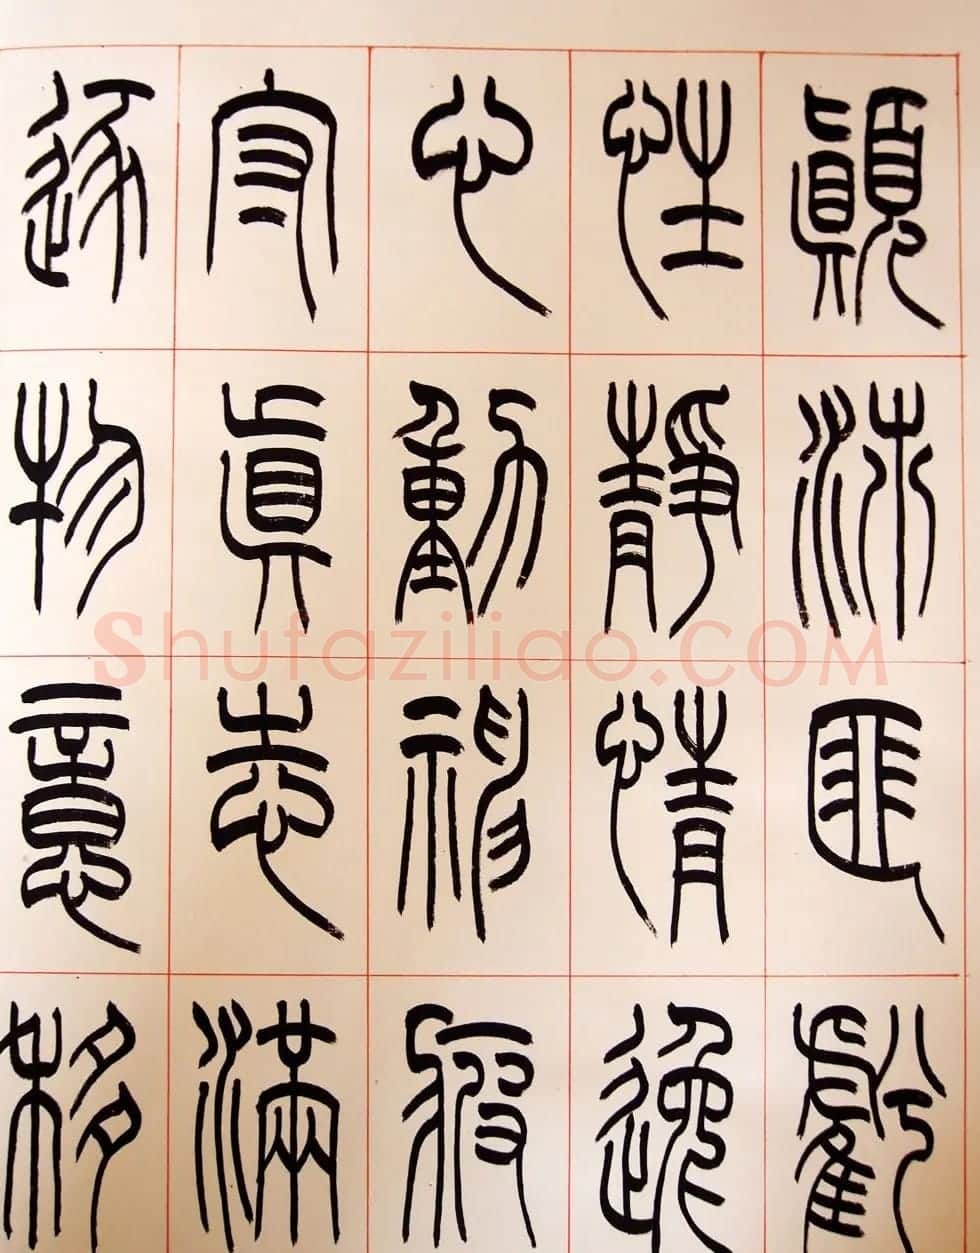 顛沛匪虧
性靜情逸
心動神疲
守真志滿
逐物意移
Shufaziliao.COM